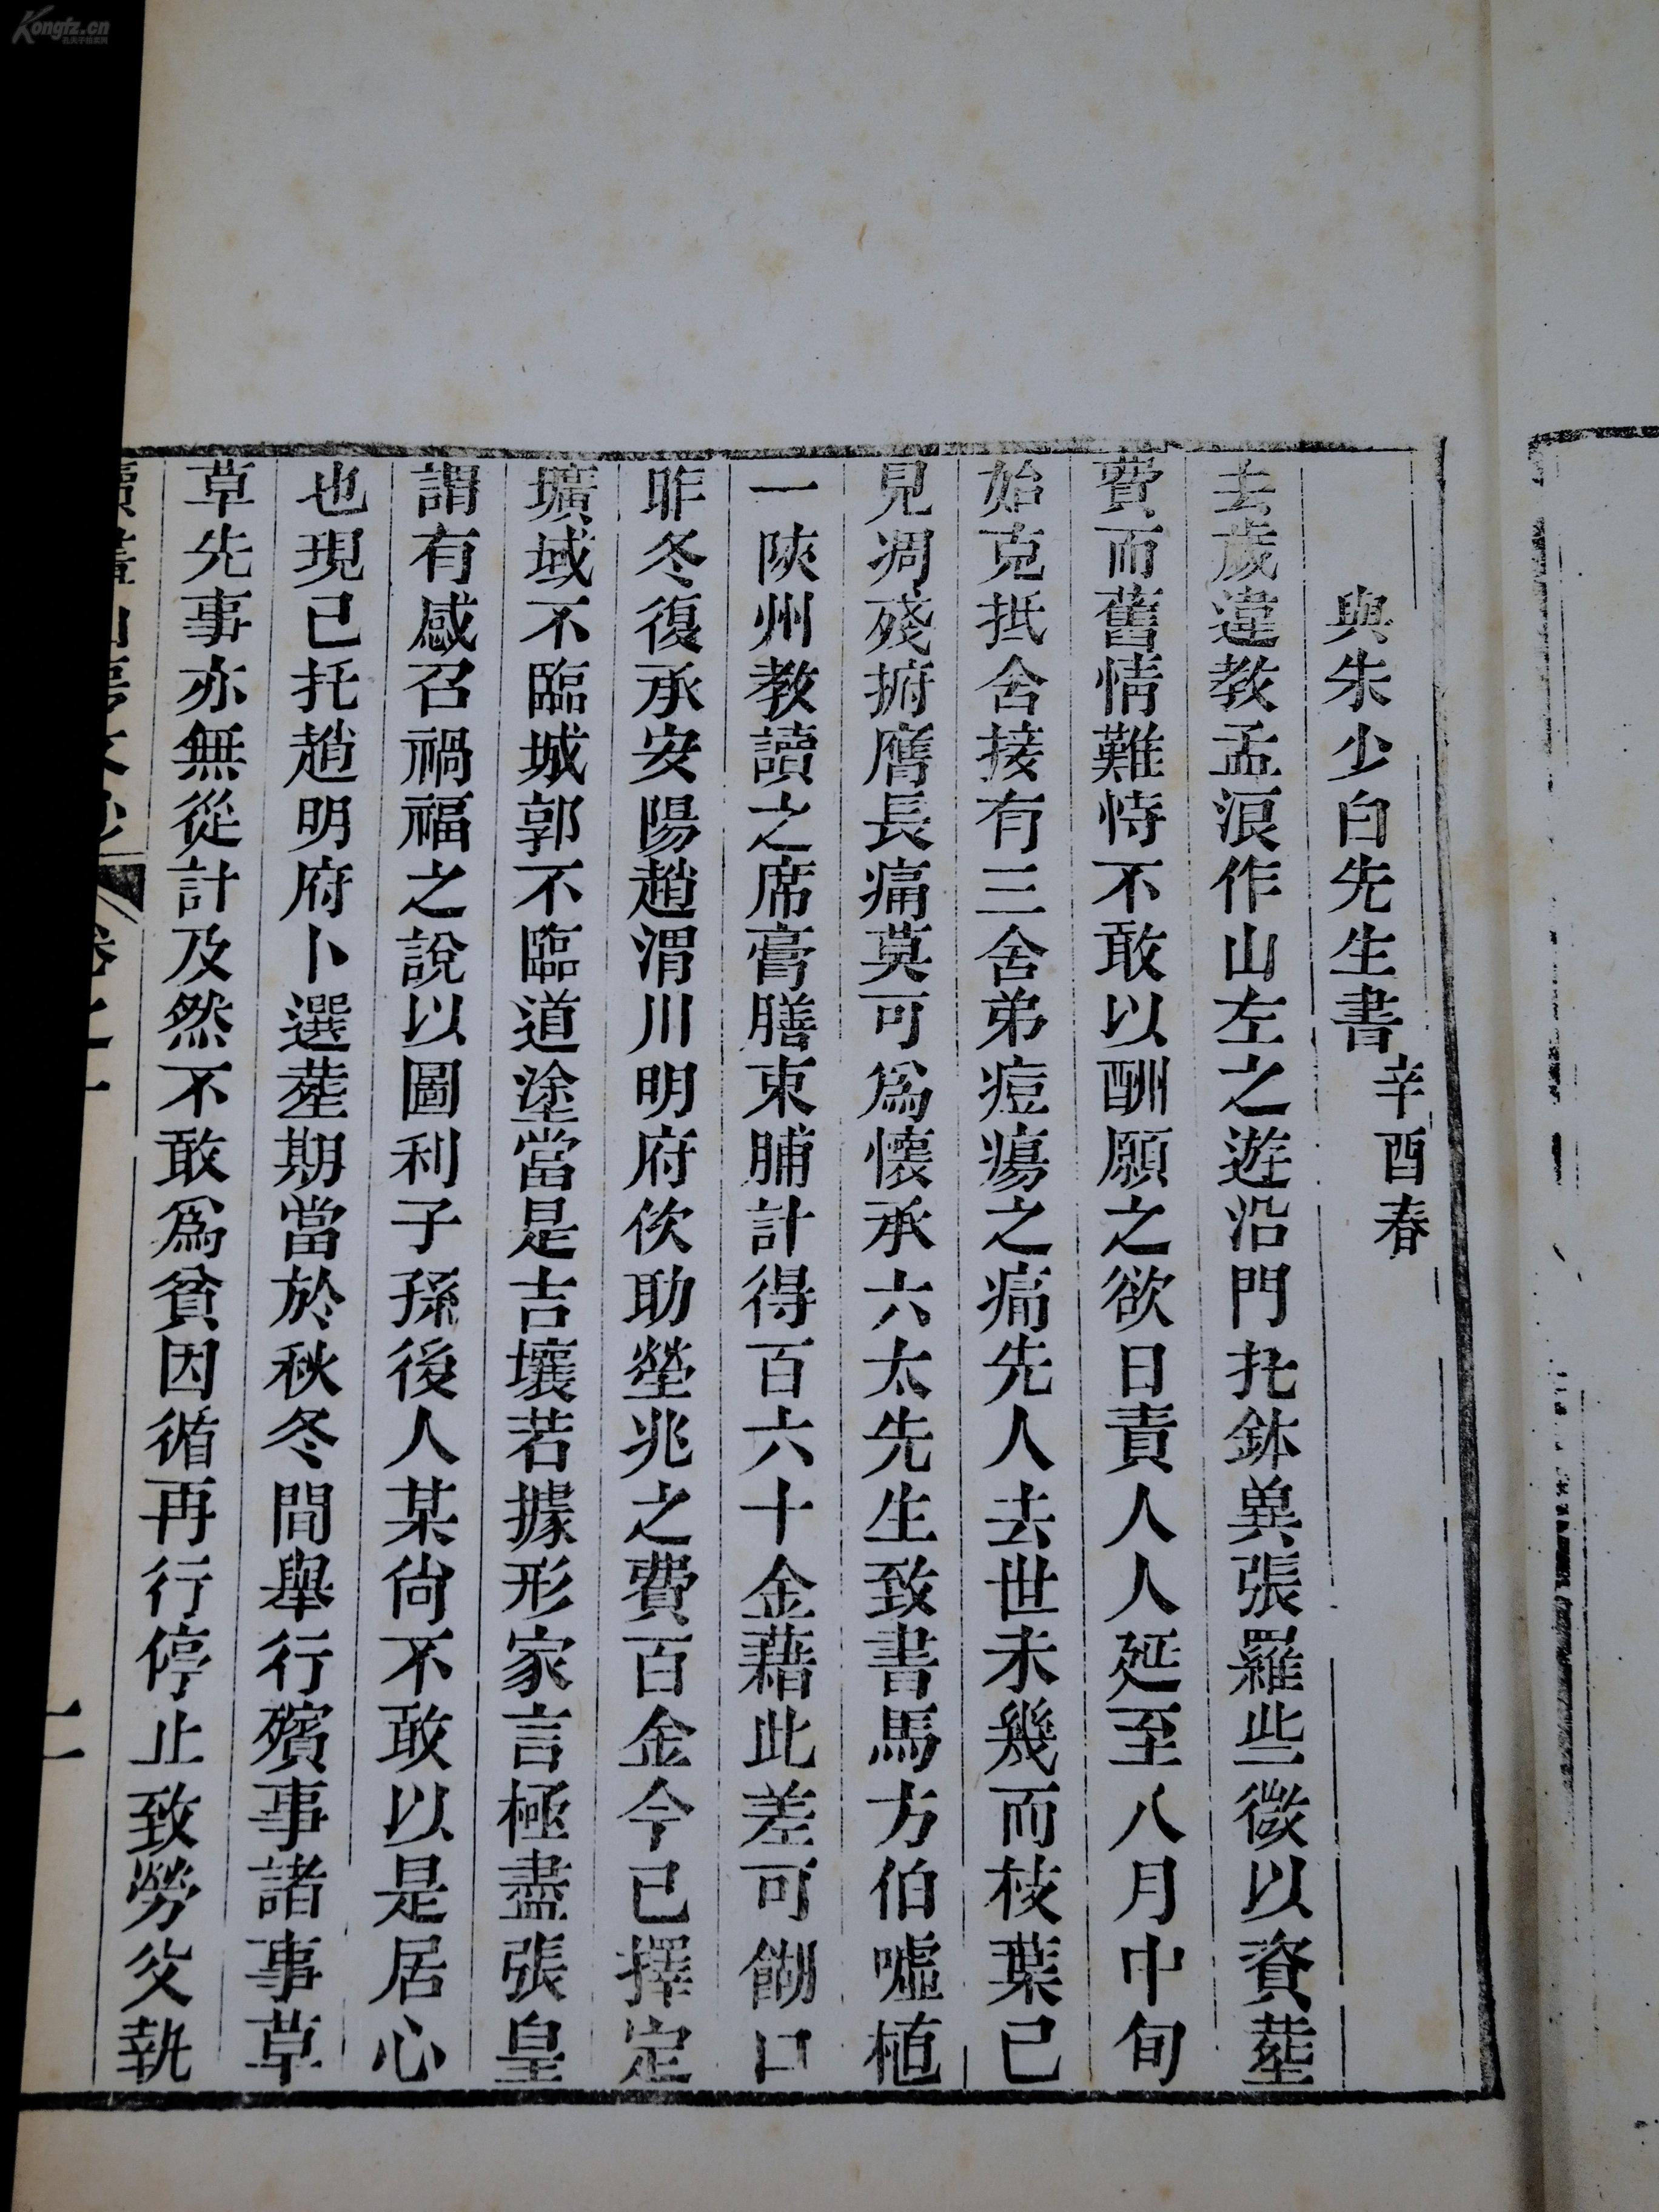 與朱少白先生書 辛酉春
去歲違教孟浪作山左之遊沿門托鉢兾張羅些微以資塟
費而舊情難恃不敢以酬願之欲日責人人延至八月中旬
始克抵舍接有三舍弟痘瘍之痛先人去世未幾而枝葉已
見凋殘撫膺長痛莫可爲懷承六太先生致書馬方伯噓植
一陝州教讀之席膏膳束脯計得百六十金藉此差可餬口
昨冬復承安陽趙渭川明府佽助塋兆之費百金今已擇定
壙域不臨城郭不臨道塗當是吉壤若據形家言極盡張皇
謂有感召禍福之說以圖利子孫後人某尙不敢以是居心
也現已托趙明府卜選塟期當於秋冬間舉行殯事諸事草
草先事亦無從計及然不敢爲貧因循再行停止致勞父執
卷之一
Kongfz.cn
孔夫子旧书网